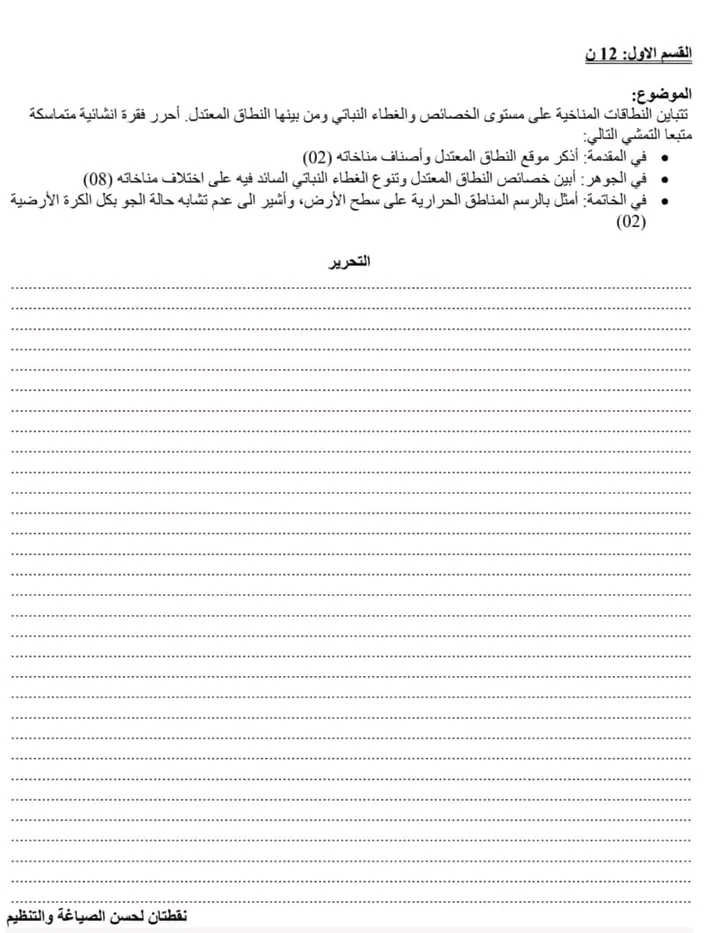 القسم الاول: 12 ن
الموضوع:
تتباين النطاقات المناخية على مستوى الخصائص والغطاء النباتي ومن بينها النطاق المعتدل. أحرر فقرة انشائية متماسكة
متبعا التمشي التالي:
• في المقدمة: أذكر موقع النطاق المعتدل وأصناف مناخاته (02)
• في الجوهر: أبين خصائص النطاق المعتدل وتنوع الغطاء النباتي السائد فيه على اختلاف مناخاته (08)
• في الخاتمة: أمثل بالرسم المناطق الحرارية على سطح الأرض، وأشير الى عدم تشابه حالة الجو بكل الكرة الأرضية
(02)
التحرير
نقطتان لحسن الصياغة والتنظيم